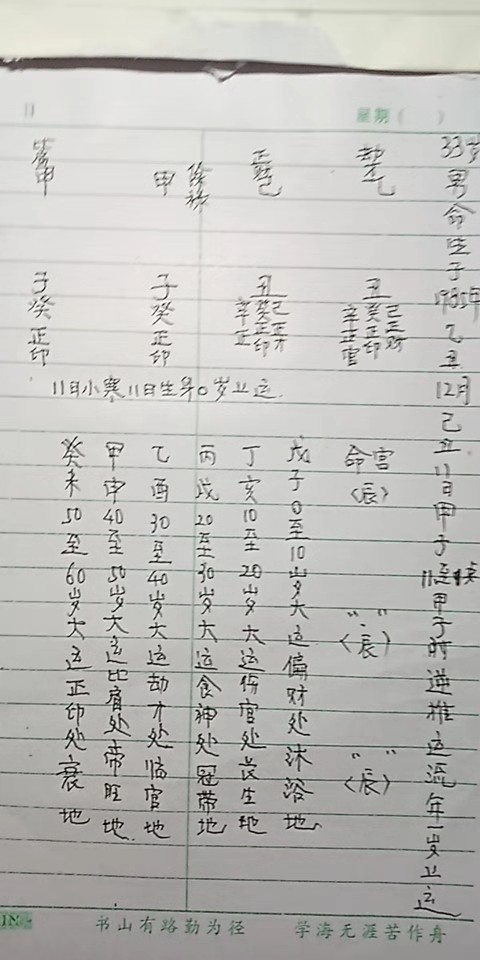 星期（ ）
33岁男命生于1985年乙丑12月己丑11日甲子11至1点甲子时逆推运流年一岁上运
劫才
乙
丑
己正财
癸正印
辛正官
命宫
〈辰〉
〈辰〉
〈辰〉
正财
己
丑
己正才
癸正印
辛正
甲
子
癸
正印
比肩
甲
子
癸
正印
11日小寒11日生算0岁上运.
戊子0至10岁大运偏财处沐浴地
丁亥10至20岁大运伤官处长生地
丙戌20至30岁大运食神处冠带地
乙酉30至40岁大运劫才处临官地
甲申40至50岁大运比肩处帝旺地.
癸未50至60岁大运正印处衰地
书山有路勤为径 学海无涯苦作舟